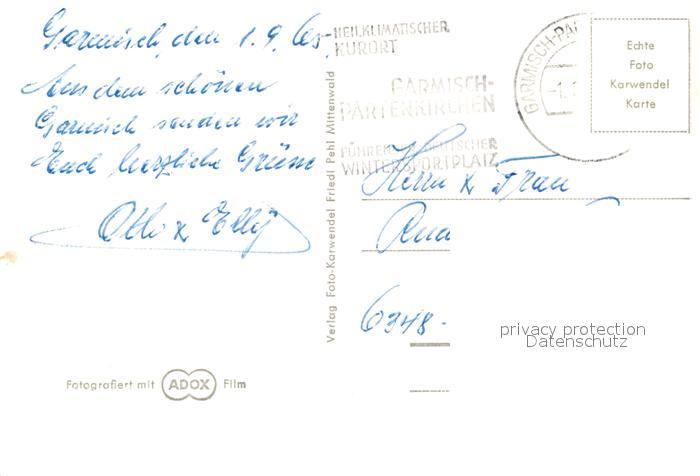 Garmisch, den 1.9.65.
Aus dem schönen
Garmisch senden wir
Euch herzliche Grüsse
Otto & Elly
HEILKLIMATISCHER
KURORT
GARMISCH-
PARTENKIRCHEN
FÜHRENDER DEUTSCHER
WINTERSPORTPLATZ
GARMISCH-PA
Echte
Foto
Karwendel
Karte
Verlag Foto-Karwendel Friedl Pehl Mittenwald
Herrn & Frau
6348.
privacy protection
Datenschutz
Fotografiert mit ADOX Film